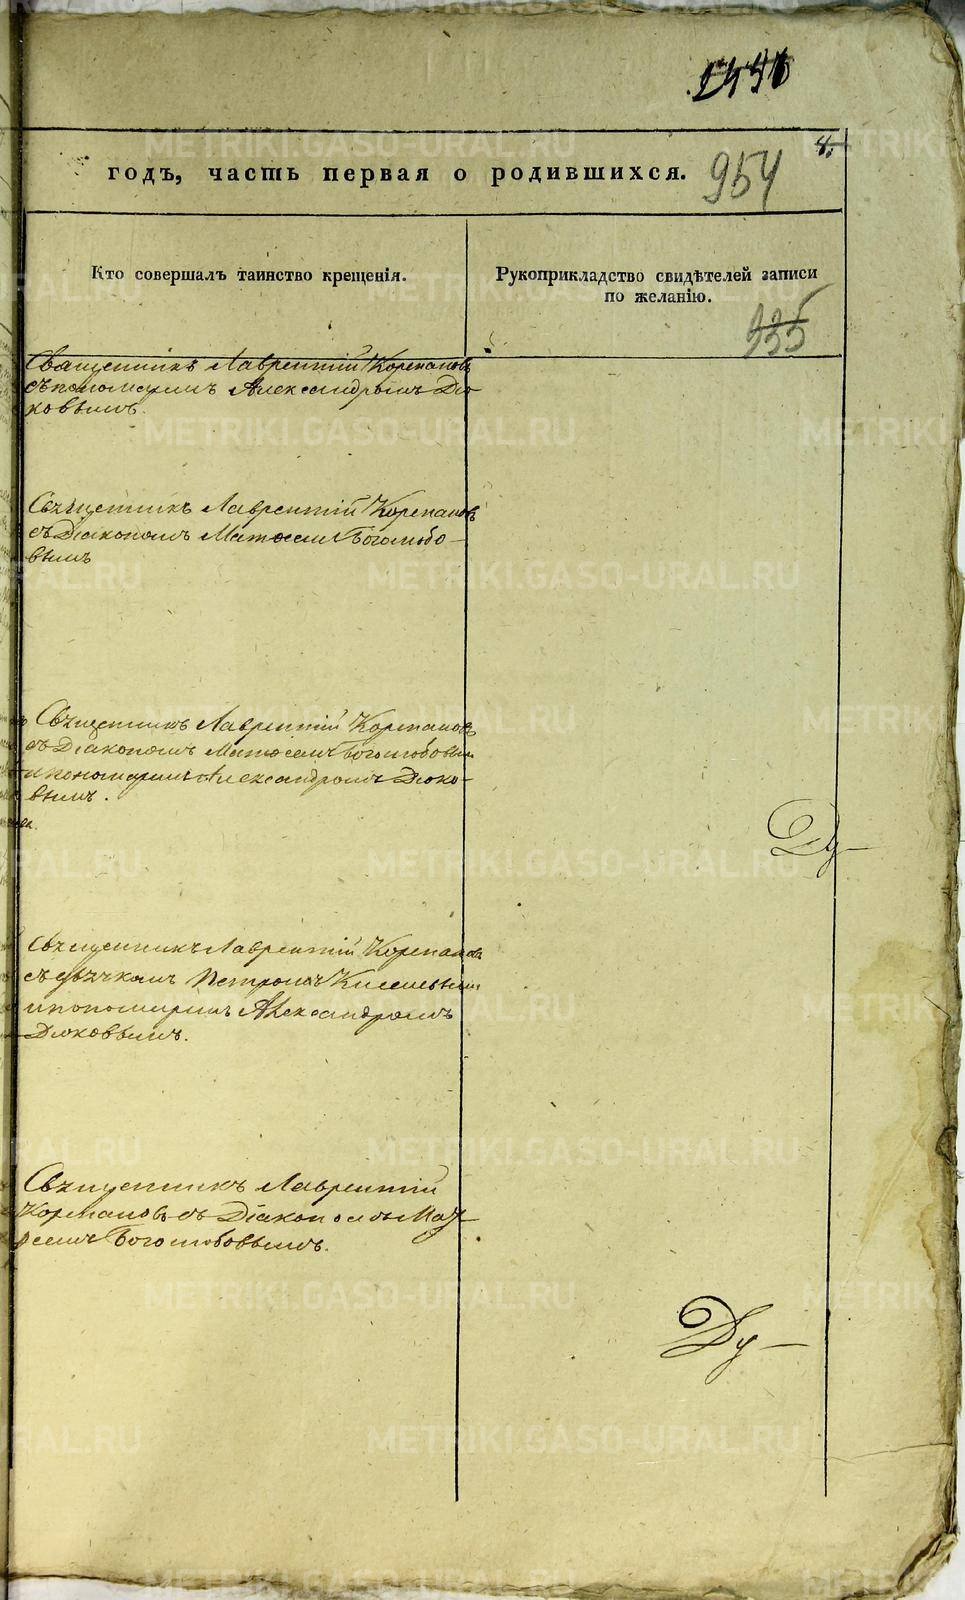 4.
годъ, часть первая о родившихся. 954
Кто совершалъ таинство крещенія.
Рукоприкладство свидѣтелей записи
по желанію.
335
Священникъ Лаврентій Корепановъ
съ пономаремъ Александромъ Дю
ковымъ.
Священникъ Лаврентій Корепановъ
съ Діакономъ Матѳеемъ Боголюбо-
вымъ
Священникъ Лаврентій Корепановъ
съ Діакономъ Матѳеемъ Боголюбовым
и пономаремъ Александромъ Дюко-
вымъ.
Священникъ Лаврентій Корепановъ
съ дьячкомъ Петромъ
и пономаремъ Александромъ
Дюковымъ.
Священникъ Лаврентій
Корепановъ съ Діакономъ Маѳ-
ѳеемъ Боголюбовымъ.
Ду-
Ду-
METRIKI.GASO-URAL.RU